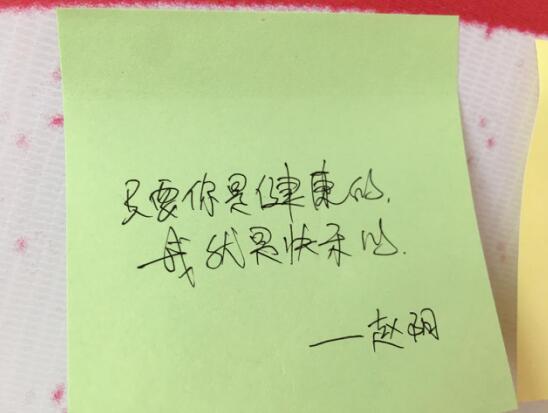 只要你是健康的，
我就是快乐的.
—赵阴